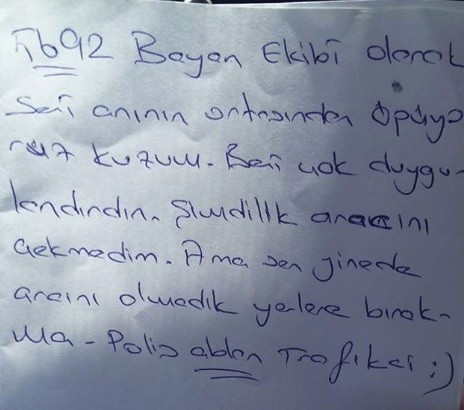 5692 Bayan Ekibi olarak
Seni anının ortasından öpüyo
ruz kuzum. Beni çok duygu-
landırdın. Şimdilik aracını
çekmedim. Ama sen yinede
aracını olmadık yerlere bırak-
ma - Polis ablan Trafikçi :)